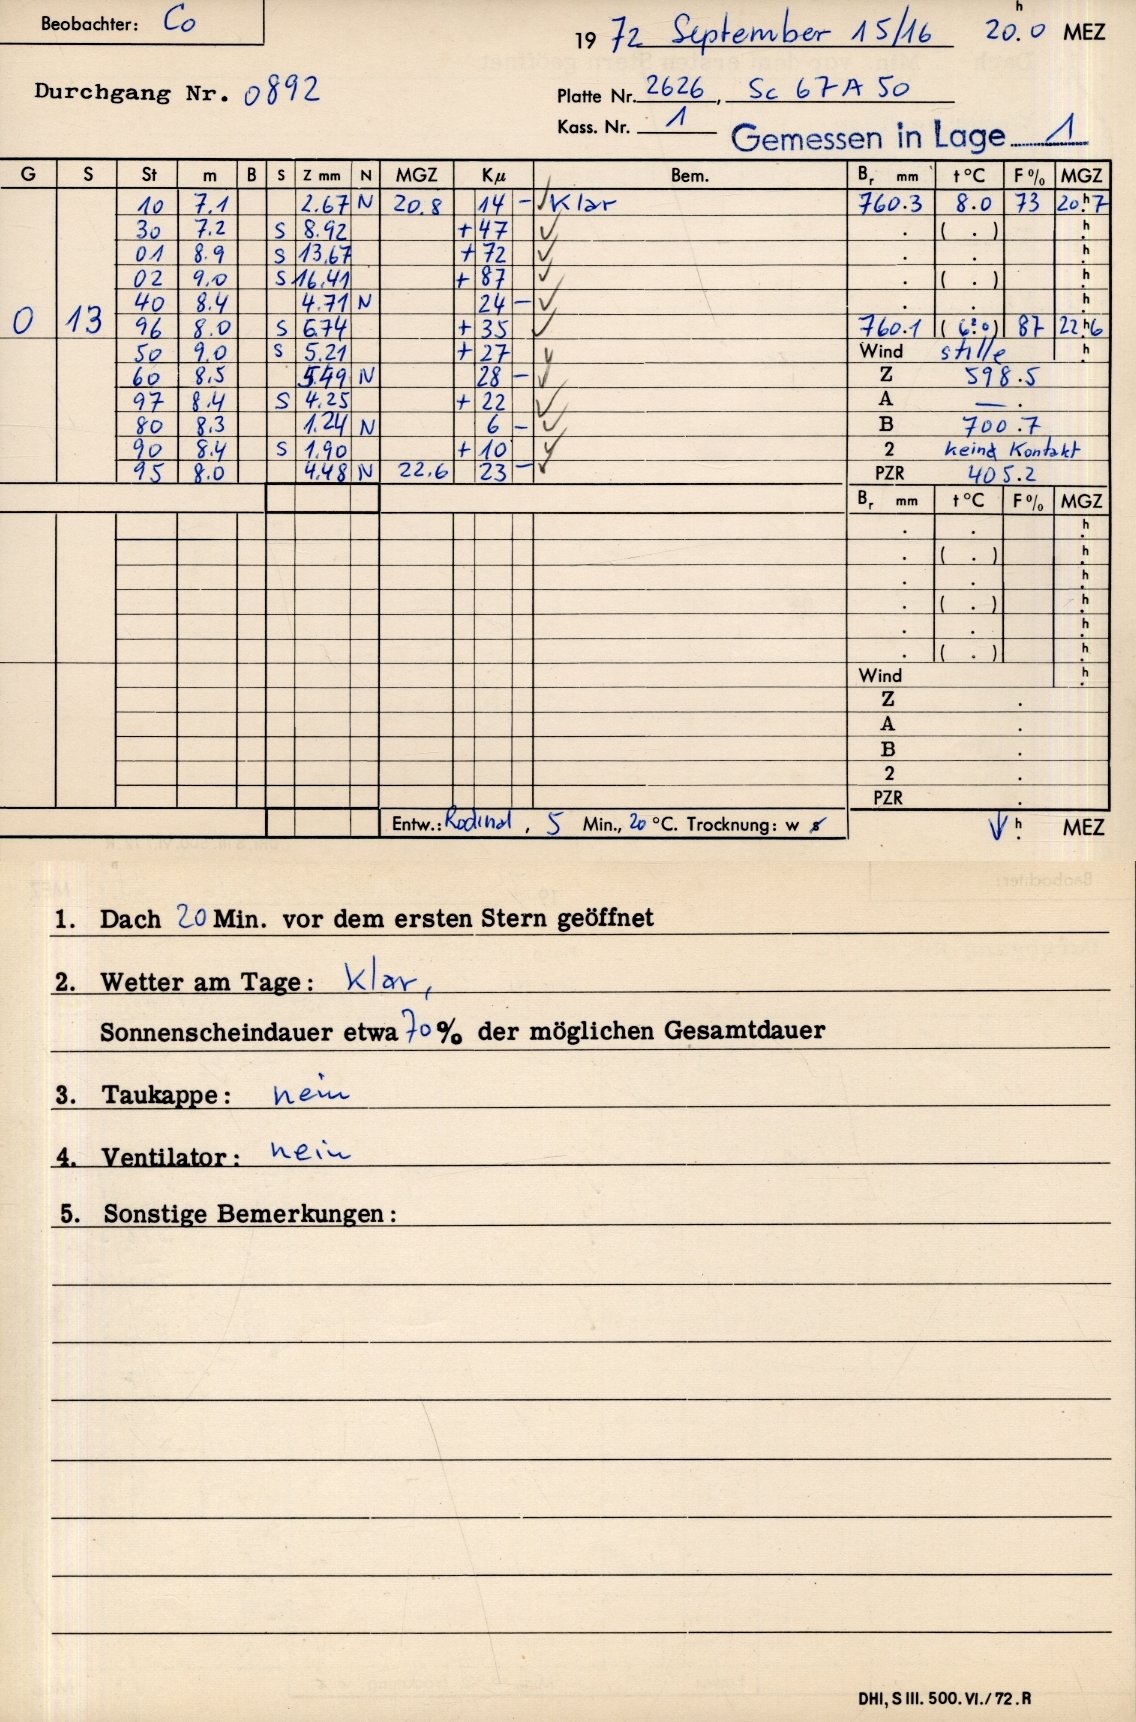 Beobachter: Co
19 72 September 15/16 20.0 h MEZ
Durchgang Nr. 0892
Platte Nr. 2626, Sc 67A50
Kass. Nr. 1
Gemessen in Lage 1
G S St m B S Z mm N MGZ Kμ Bem. Br mm t °C F % MGZ
10 7.1 2.67 N 20.8 14 - ✓ Klar 760.3 8.0 73 20.h7
30 7.2 S 8.92 + 47 ✓ . ( . ) h.
01 8.9 S 13.67 + 72 ✓ . . h.
02 9.0 S 16.41 + 87 ✓ . ( . ) h.
40 8.4 4.71 N 24 - ✓ . . h.
0 13 96 8.0 S 6.74 + 35 ✓ 760.1 ( 6.0 ) 87 22.h6
50 9.0 S 5.21 + 27 ✓ Wind stille h.
60 8.5 5.49 N 28 - ✓ Z 598.5
97 8.4 S 4.25 + 22 ✓ A — .
80 8.3 1.24 N 6 - ✓ B 700.7
90 8.4 S 1.90 + 10 ✓ 2 Kontakt
95 8.0 4.48 N 22.6 23 - ✓ PZR 405.2
Br mm t °C F % MGZ
. . h.
. ( . ) h.
. . h.
. ( . ) h.
. . h.
. ( . ) h.
Wind h.
Z .
A .
B .
2 .
PZR .
Entw.: Rodinal, 5 Min., 20 °C. Trocknung: w s ↓ h. MEZ
1. Dach 20 Min. vor dem ersten Stern geöffnet
2. Wetter am Tage: Klar,
Sonnenscheindauer etwa 70 % der möglichen Gesamtdauer
3. Taukappe: nein
4. Ventilator: nein
5. Sonstige Bemerkungen:
DHI, S III. 500. VI. / 72. R